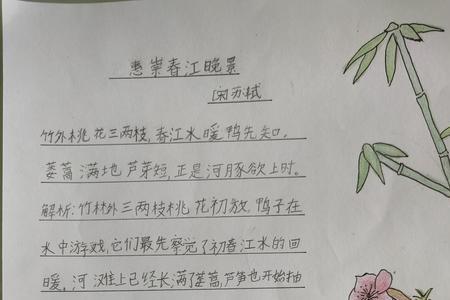 惠崇春江晚景
[宋]苏轼
竹外桃花三两枝,春江水暖鸭先知。
蒌蒿满地芦芽短,正是河豚欲上时。
解析:竹林外三两枝桃花初放,鸭子在
水中游戏,它们最先察觉了初春江水的回
暖,河滩上已经长满了蒌蒿,芦笋也开始抽